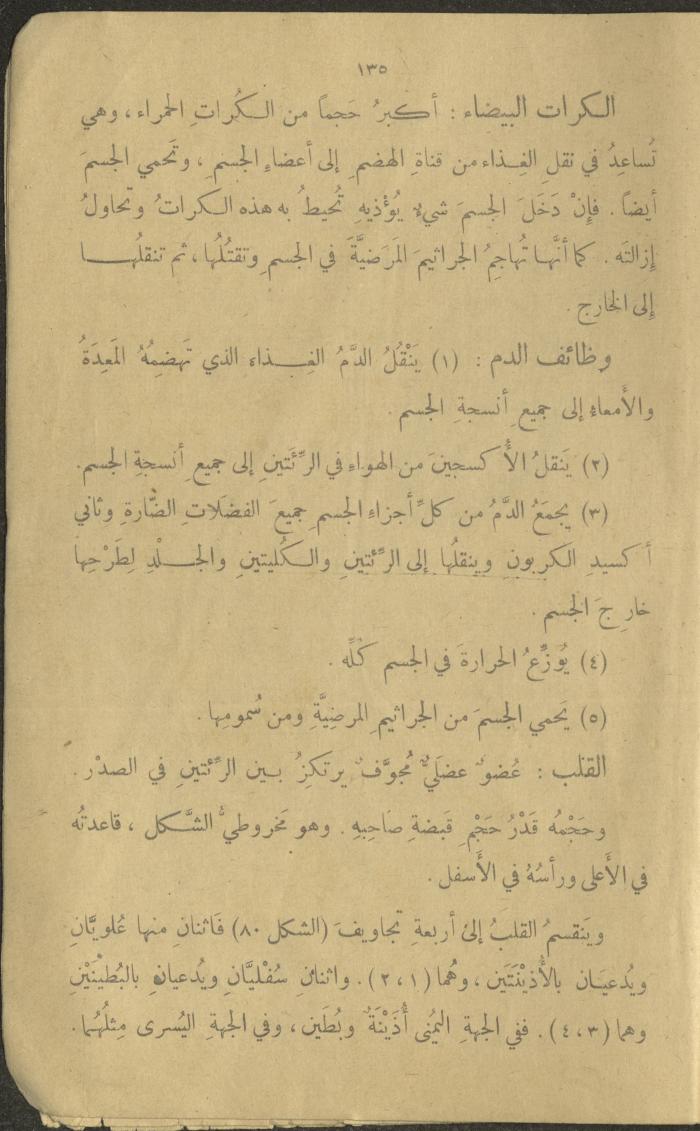 ١٣٥
الكرات البيضاء : أكبرُ حَجماً من الكُراتِ الحمراء ، وهي
تُساعِدُ في نقلِ الغِذاء من قناةِ الهضمِ إلى أعضاءِ الجسمِ ، وتَحمي الجسمَ
أيضاً . فإِنْ دَخَلَ الجسمَ شيءٌ يُؤْذيهِ تُحيطُ به هذه الكراتُ وتحاولُ
إِزالتَه . كما أنَّها تُهاجِمُ الجراثيمَ المَرَضيَّةَ في الجسمِ وتقتُلُها ، ثم تنقلُها
إِلى الخارجِ .
وظائف الدم : (١) يَنْقُلُ الدَّمُ الغِذاء الذي تَهضِمُهُ المَعِدَةُ
والأَمعاءِ إلى جميعِ أنسجةِ الجسمِ .
(٢) يَنقلُ الأُكسجينَ من الهواءِ في الرِّئَتينِ إلى جميعِ أنسجةِ الجسم.
(٣) يجمَعُ الدَّمُ من كلِّ أجزاءِ الجسمِ جميعَ الفضَلَاتِ الضّارةِ وثاني
أكسيدِ الكربونِ وينقلُها إلى الرِّئتينِ والكُليتينِ والجلْدِ لِطَرْحِها
خارجَ الجسم .
(٤) يُوَزِّعُ الحرارةَ في الجسم كلِّه .
(٥) يَحمي الجسمَ من الجراثيمِ المرضيَّةِ ومن سُمومِها .
القلب : عُضوٌ عضَليٌّ مُجوَّفٌ يرتكِزُ بين الرِّئتينِ في الصدْر .
وحَجْمُه قَدْرُ حَجْمِ قَبضةِ صَاحِبِهِ . وهو مَخروطيُّ الشَّكل ، قاعدتُه
في الأَعلى ورأسُهُ في الأَسفل .
ويَنقسمُ القلبُ إلى أربعةِ تجاويفَ (الشكل ٨٠) فَاثنانِ منها عُلويَّانِ
ويُدعيَان بالأُذَيْنَتَين ، وهُما (١ ، ٢) . واثنانِ سُفْليَّانِ ويُدعيانِ بالبُطَيْنَيْنِ
وهما (٣ ، ٤) . ففي الجهةِ اليُمنى أُذَيْنَةٌ وبُطَين ، وفي الجهةِ اليُسرى مِثلُهُما.